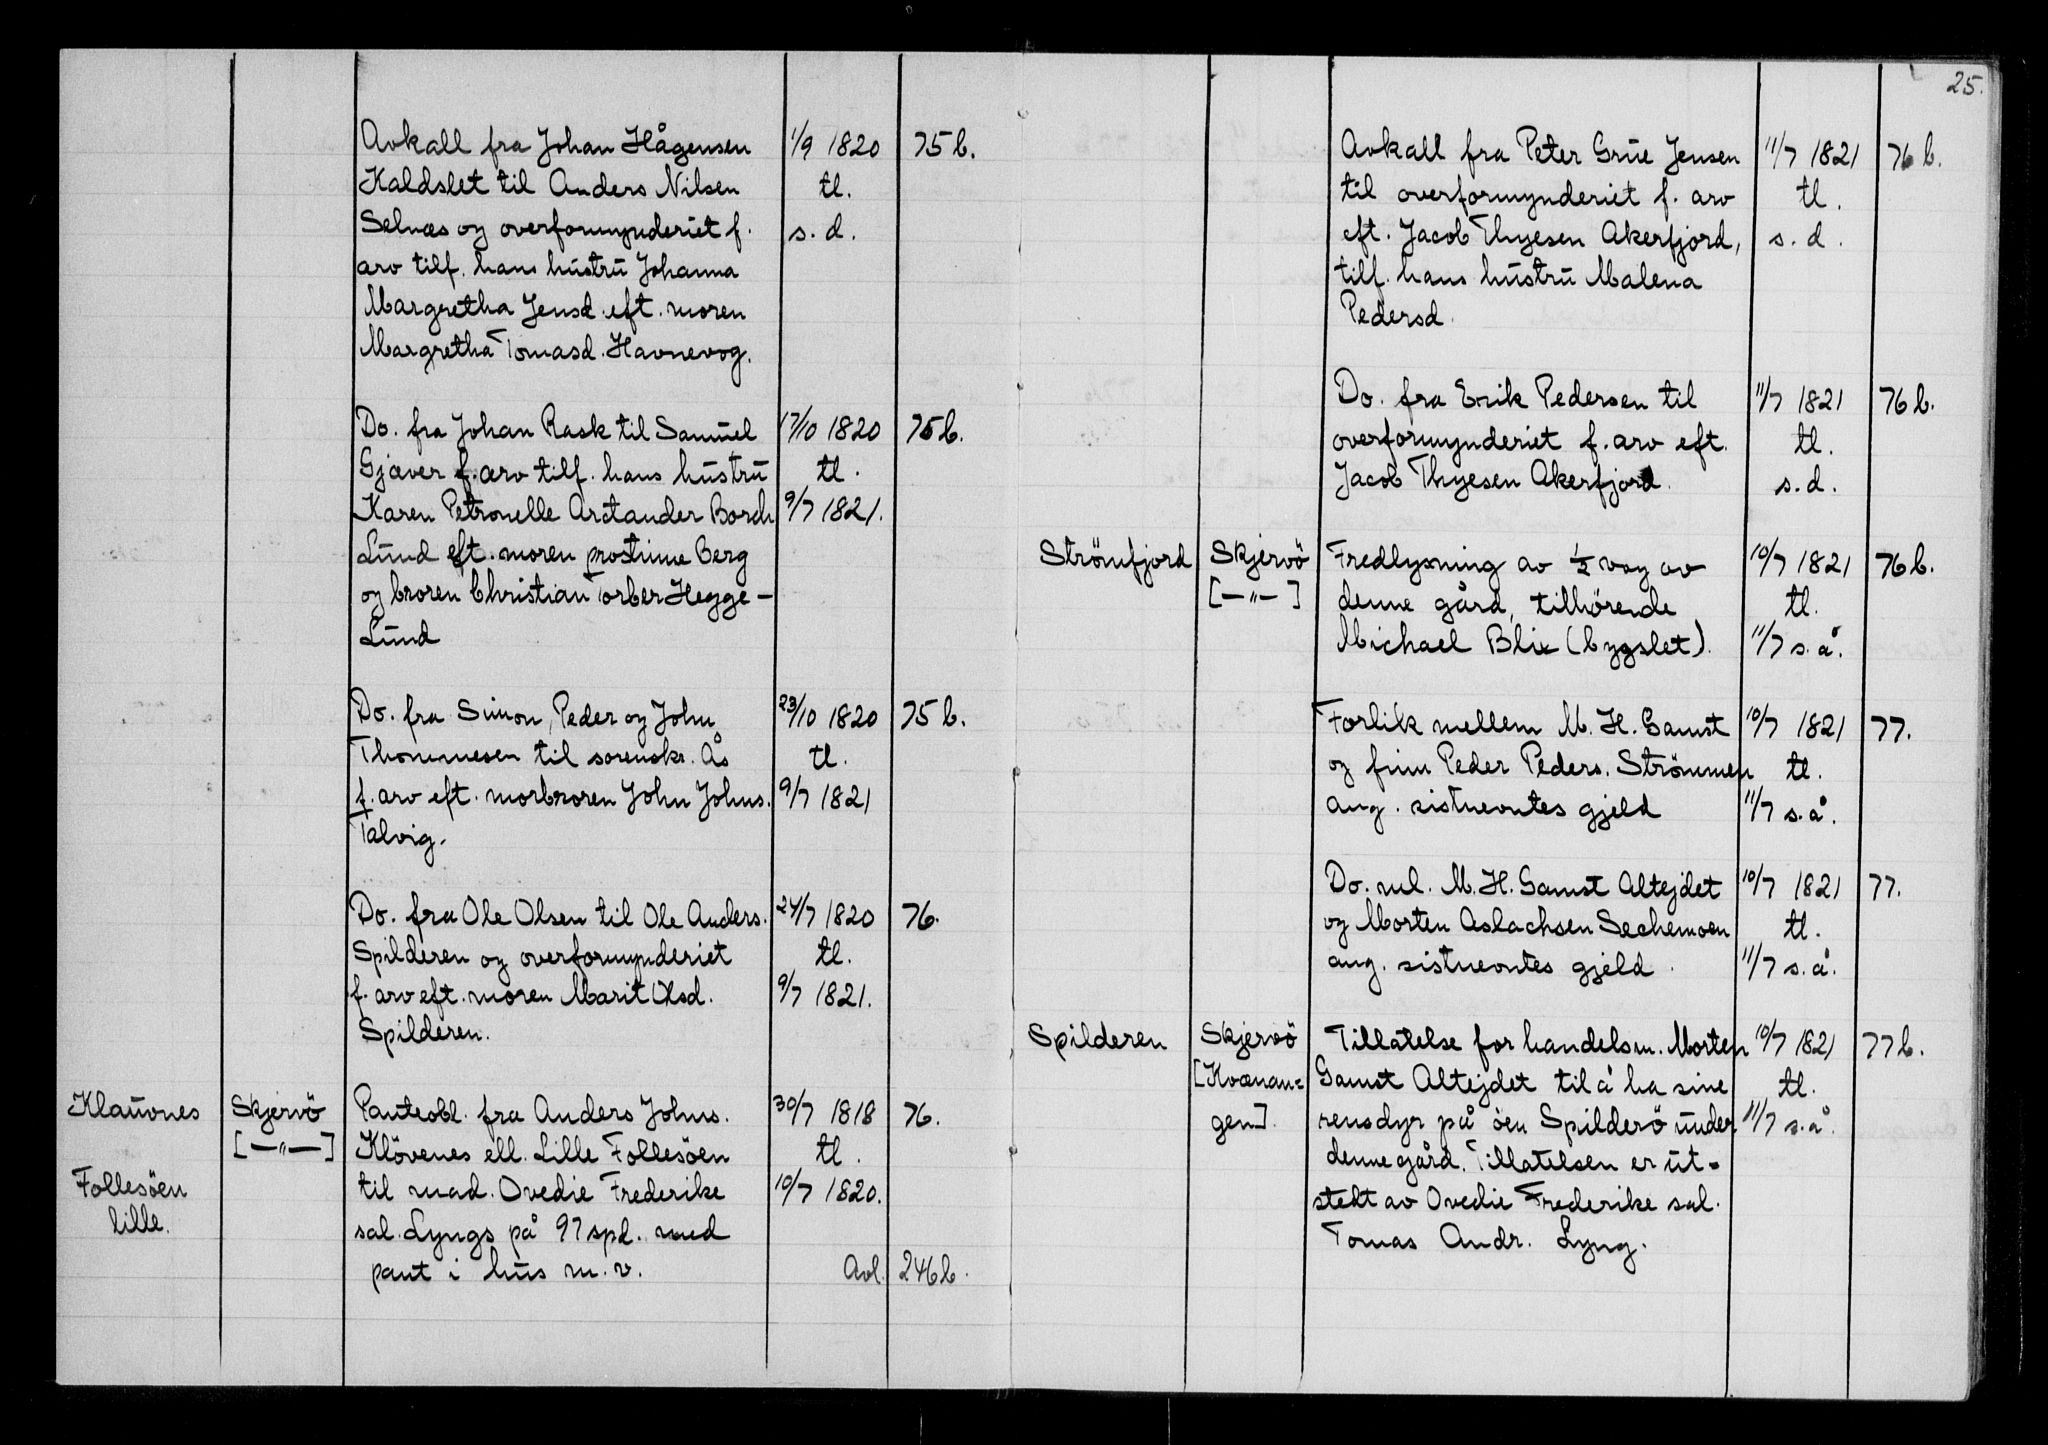 Avkall fra Johan Hågensen 1/9 1820 75 b.
Kaldslet til Anders Nilsen tl.
Selnæs og overformynderiet f. s. d.
arv tilf. hans hustru Johanna
Margretha Jensd. eft. moren
Margretha Tomasd. Havnevog.
Do. fra Johan Rask til Samuel 17/10 1820 75 b.
Gjæver f. arv tilf. hans hustru tl.
Karen Petronelle Arctander Borch 9/7 1821.
Lund eft. moren prostinne Berg
og broren Christian Torber Hegge-
Lund
Do. fra Simon, Peder og John 23/10 1820 75 b.
Thommesen til sorenskr. Ås tl.
f. arv eft. morbroren John Johns. 9/7 1821
Talvig.
Do. fra Ole Olsen til Ole Anders. 24/7 1820 76.
Spilderen og overformynderiet tl.
f. arv eft. moren Marit Olsd. 9/7 1821.
Spilderen.
Klauvnes Skjervö Panteobl. fra Anders Johns. 30/7 1818 76.
[—„—] Klövenes ell. Lille Follesöen tl.
Follesöen til mad. Ovedie Frederike 10/7 1820.
lille. sal. Lyngs på 97 spd. med
pant i hus m. v. Avl. 246 b.
25.
Avkall fra Peter Grue Jensen 11/7 1821 76 b.
til overformynderiet f. arv tl.
eft. Jacob Thyesen Akerfjord, s. d.
tilf. hans hustru Malena
Pedersd.
Do. fra Erik Pedersen til 11/7 1821 76 b.
overformynderiet f. arv eft. tl.
Jacob Thyesen Akerfjord. s. d.
Strömfjord Skjervö Fredlysning av ½ vog av 10/7 1821 76 b.
[—„—] denne gård, tilhörende tl.
Michael Blix (bygslet). 11/7 s. å.
Forlik mellem M. H. Gamst 10/7 1821 77.
og finn Peder Peders. Strömmen tl.
ang. sistnevntes gjeld 11/7 s. å.
Do. ml. M. H. Gamst Altejdet 10/7 1821 77.
og Morten Aslachsen Sechemoen tl.
ang. sistnevntes gjeld. 11/7 s. å.
Spilderen Skjervö Tillatelse for handelsm. Morten 10/7 1821 77 b.
[Kvænan= Gamst Altejdet til å ha sine tl.
gen]. rensdyr på öen Spilderö under 11/7 s. å.
denne gård. Tillatelsen er ut-
stedt av Ovedie Frederike sal.
Tomas Andr. Lyng.